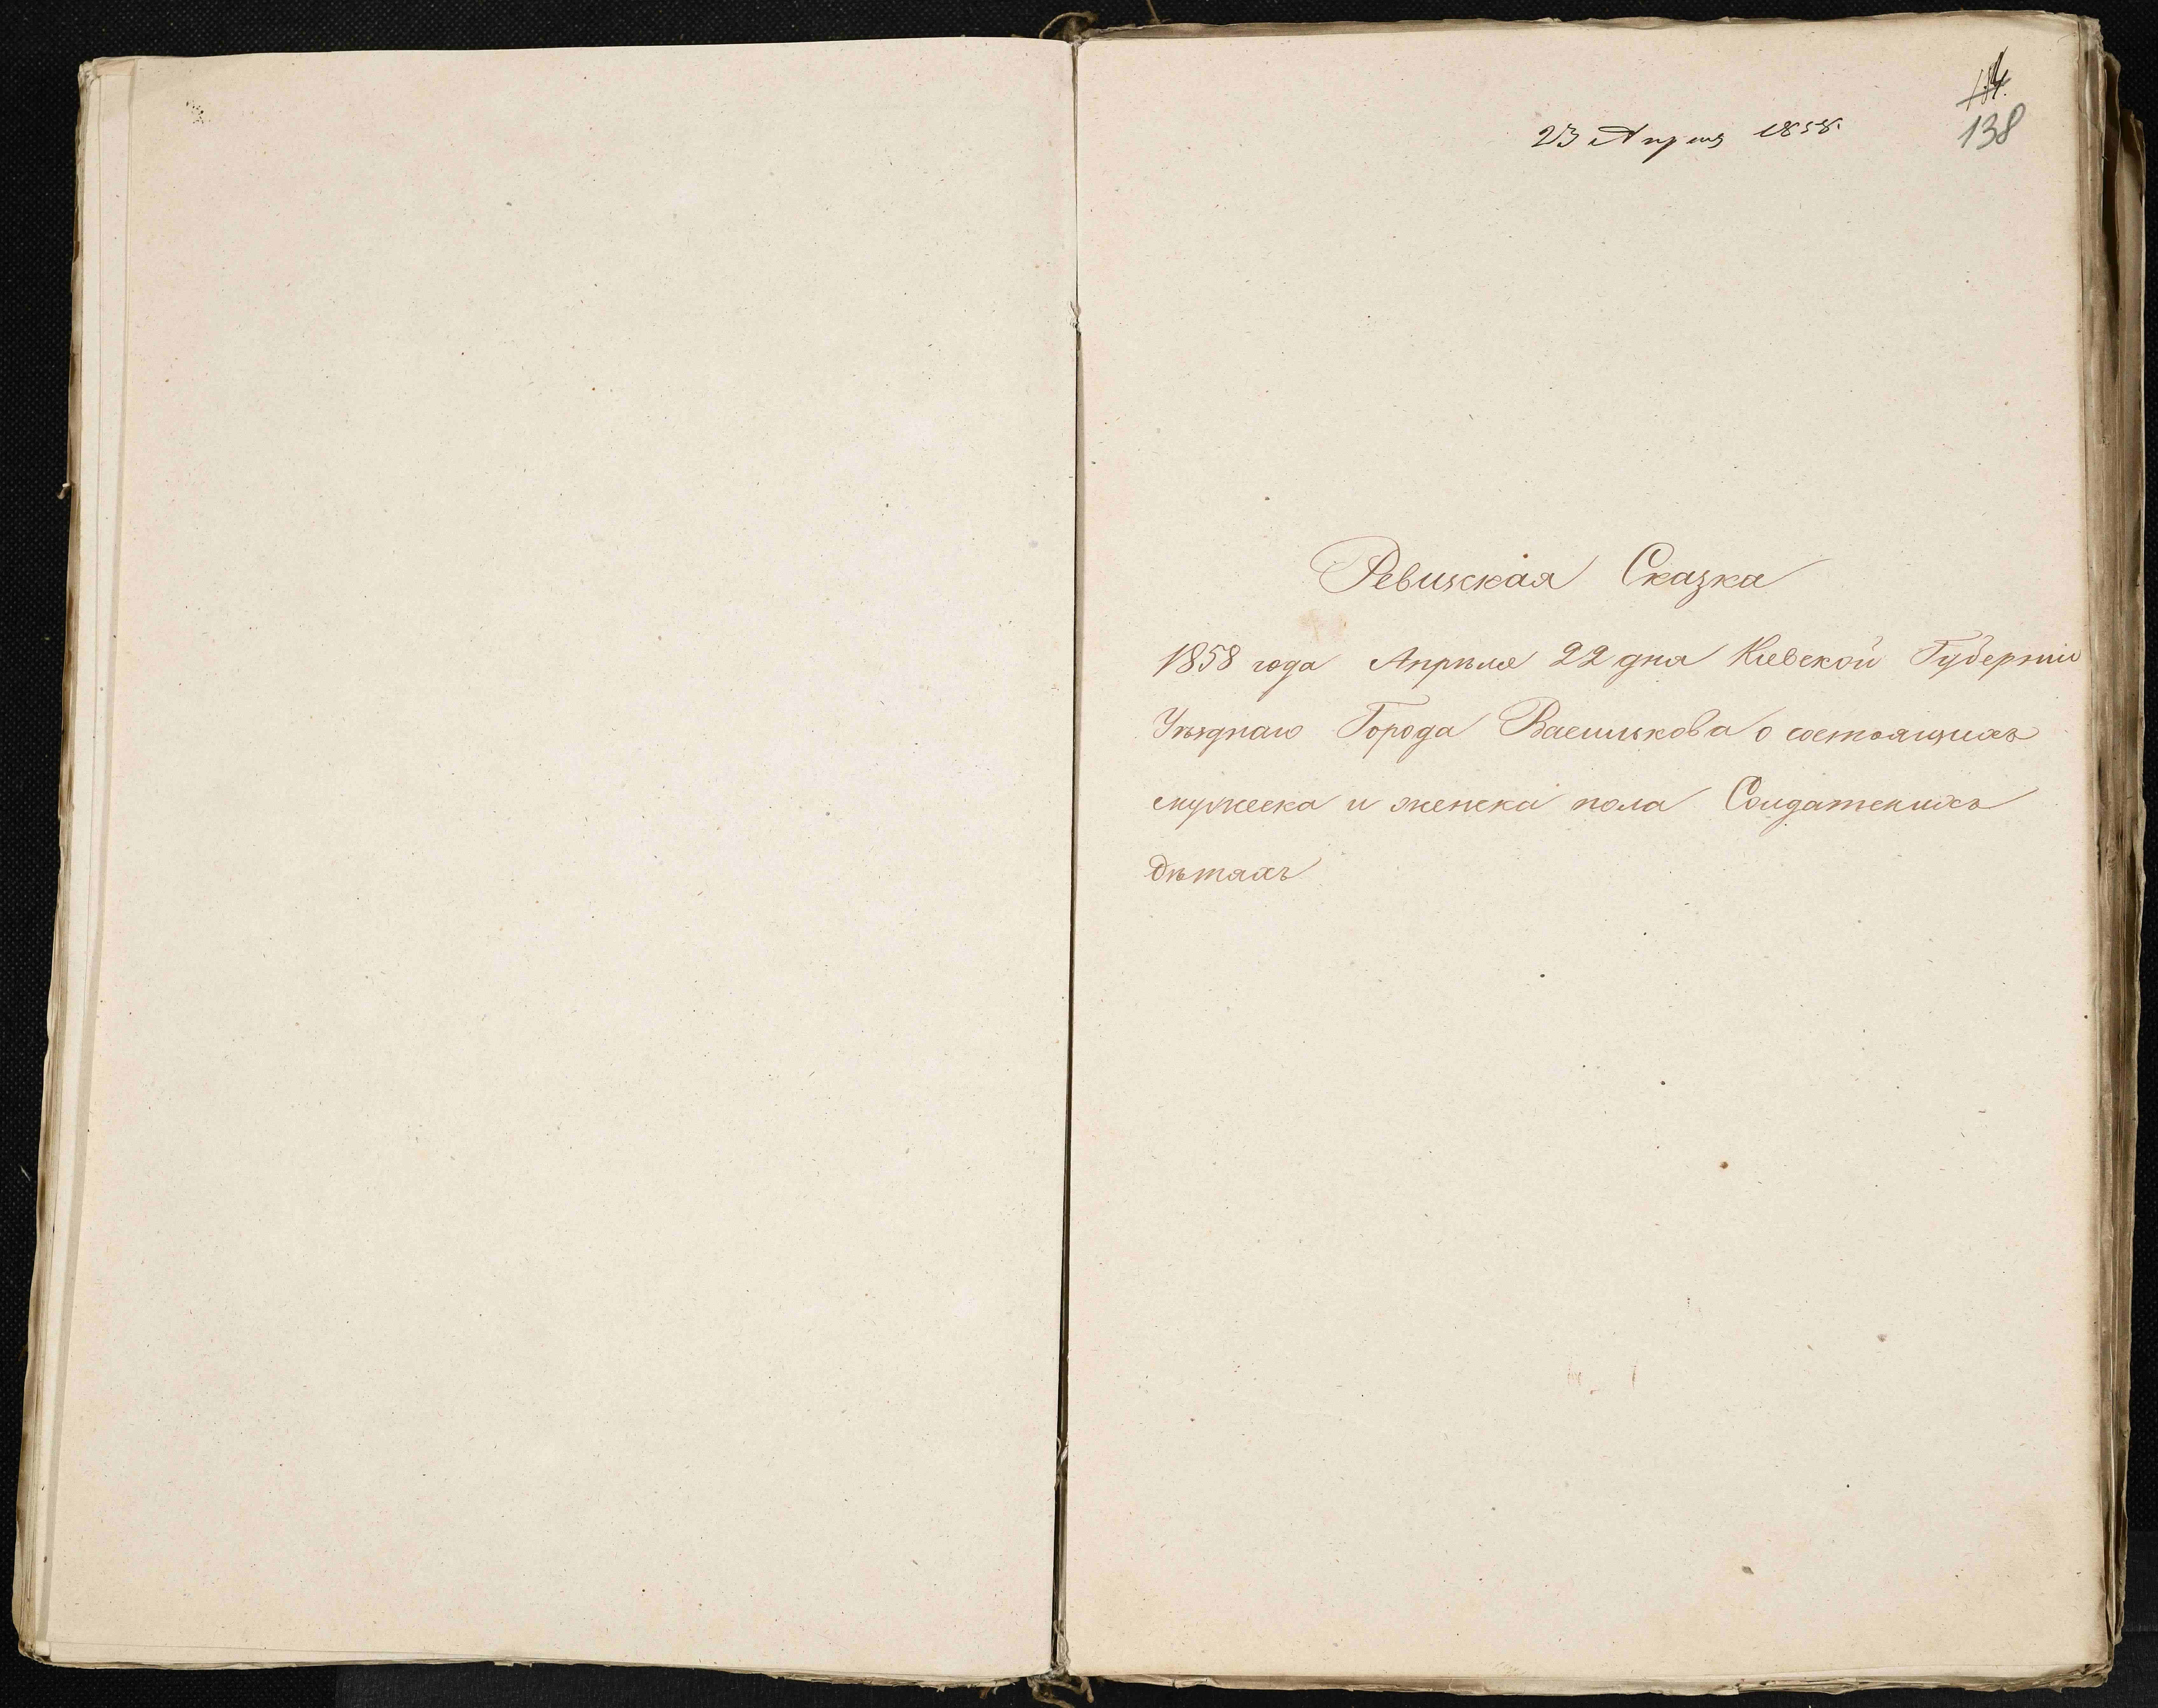 23 Апреля 1858.
138
Ревизская Сказка
1858 года Апрѣля 22 дня Кіевской Губерніи
Уѣзднаго Города Василькова о состоящихъ
мужеска и женска пола Солдатскихъ
дѣтяхъ